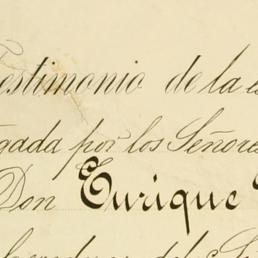 Testimonio de la es
gada por los Señores
Don Enrique